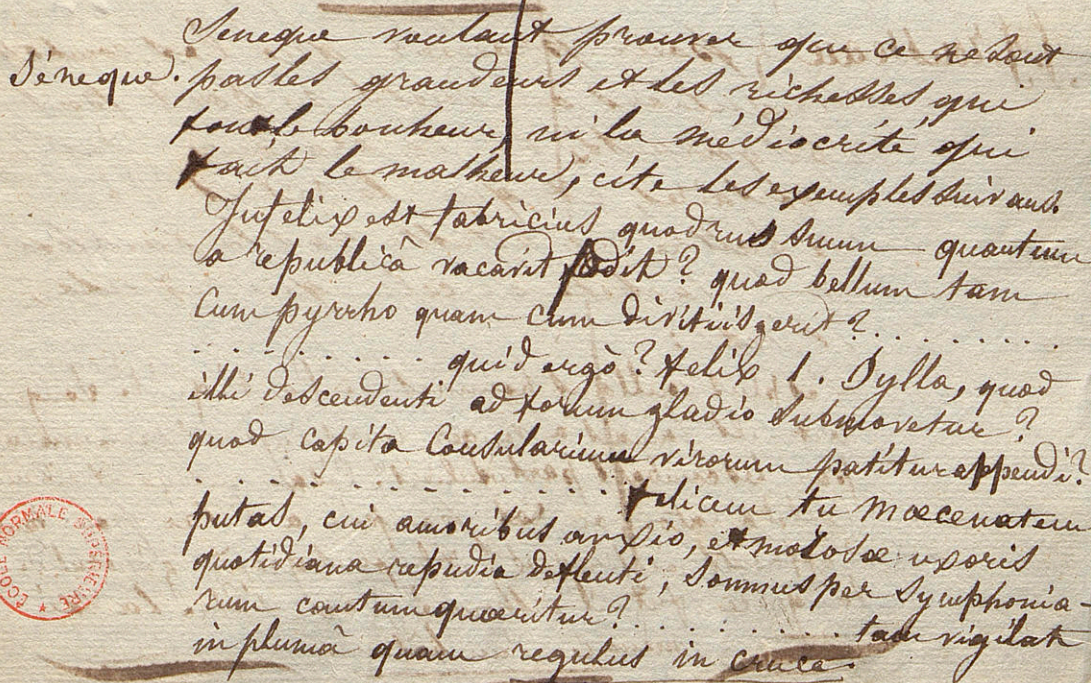 Seneque voulant prouver que ce ne sont
Séneque. pas les grandeurs et les richesses qui
font le bonheur, ni la médiocrité qui
fait le malheur, cite les exemples suivans.
Infelix est fabricius quod rus suum quantum
a republicâ vacavit fodit? quod bellum tam
cum pyrrho quam cum divitiis gerit? . . . . . . . . . .
. . . . . . . . . . . quid ergò? felix l. Sylla, quod
illi descendenti ad forum gladio submovetur?
quod capita Consularium virorum patitur appendi?
. . . . . . . . . . . . . . . . felicem tu Mœcenatem
putas, cui amoribus anxio, et morosœ uxoris
quotidiana repudia deflenti, Somnus per Symphonia-
rum cantum quœritur? . . . . . . . . . . tam vigilat
in plumâ quam regulus in cruce.
ECOLE NORMALE SUPERIEURE